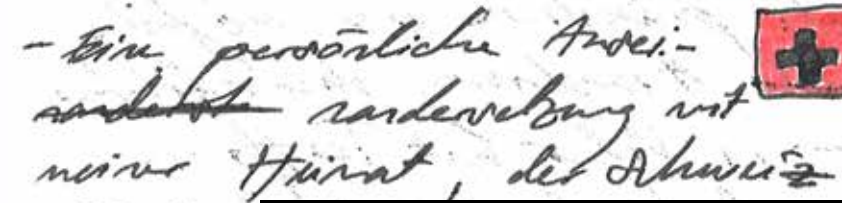 - Eine persönliche Ausei-
nandersetzung mit
meiner Heimat, der Schweiz